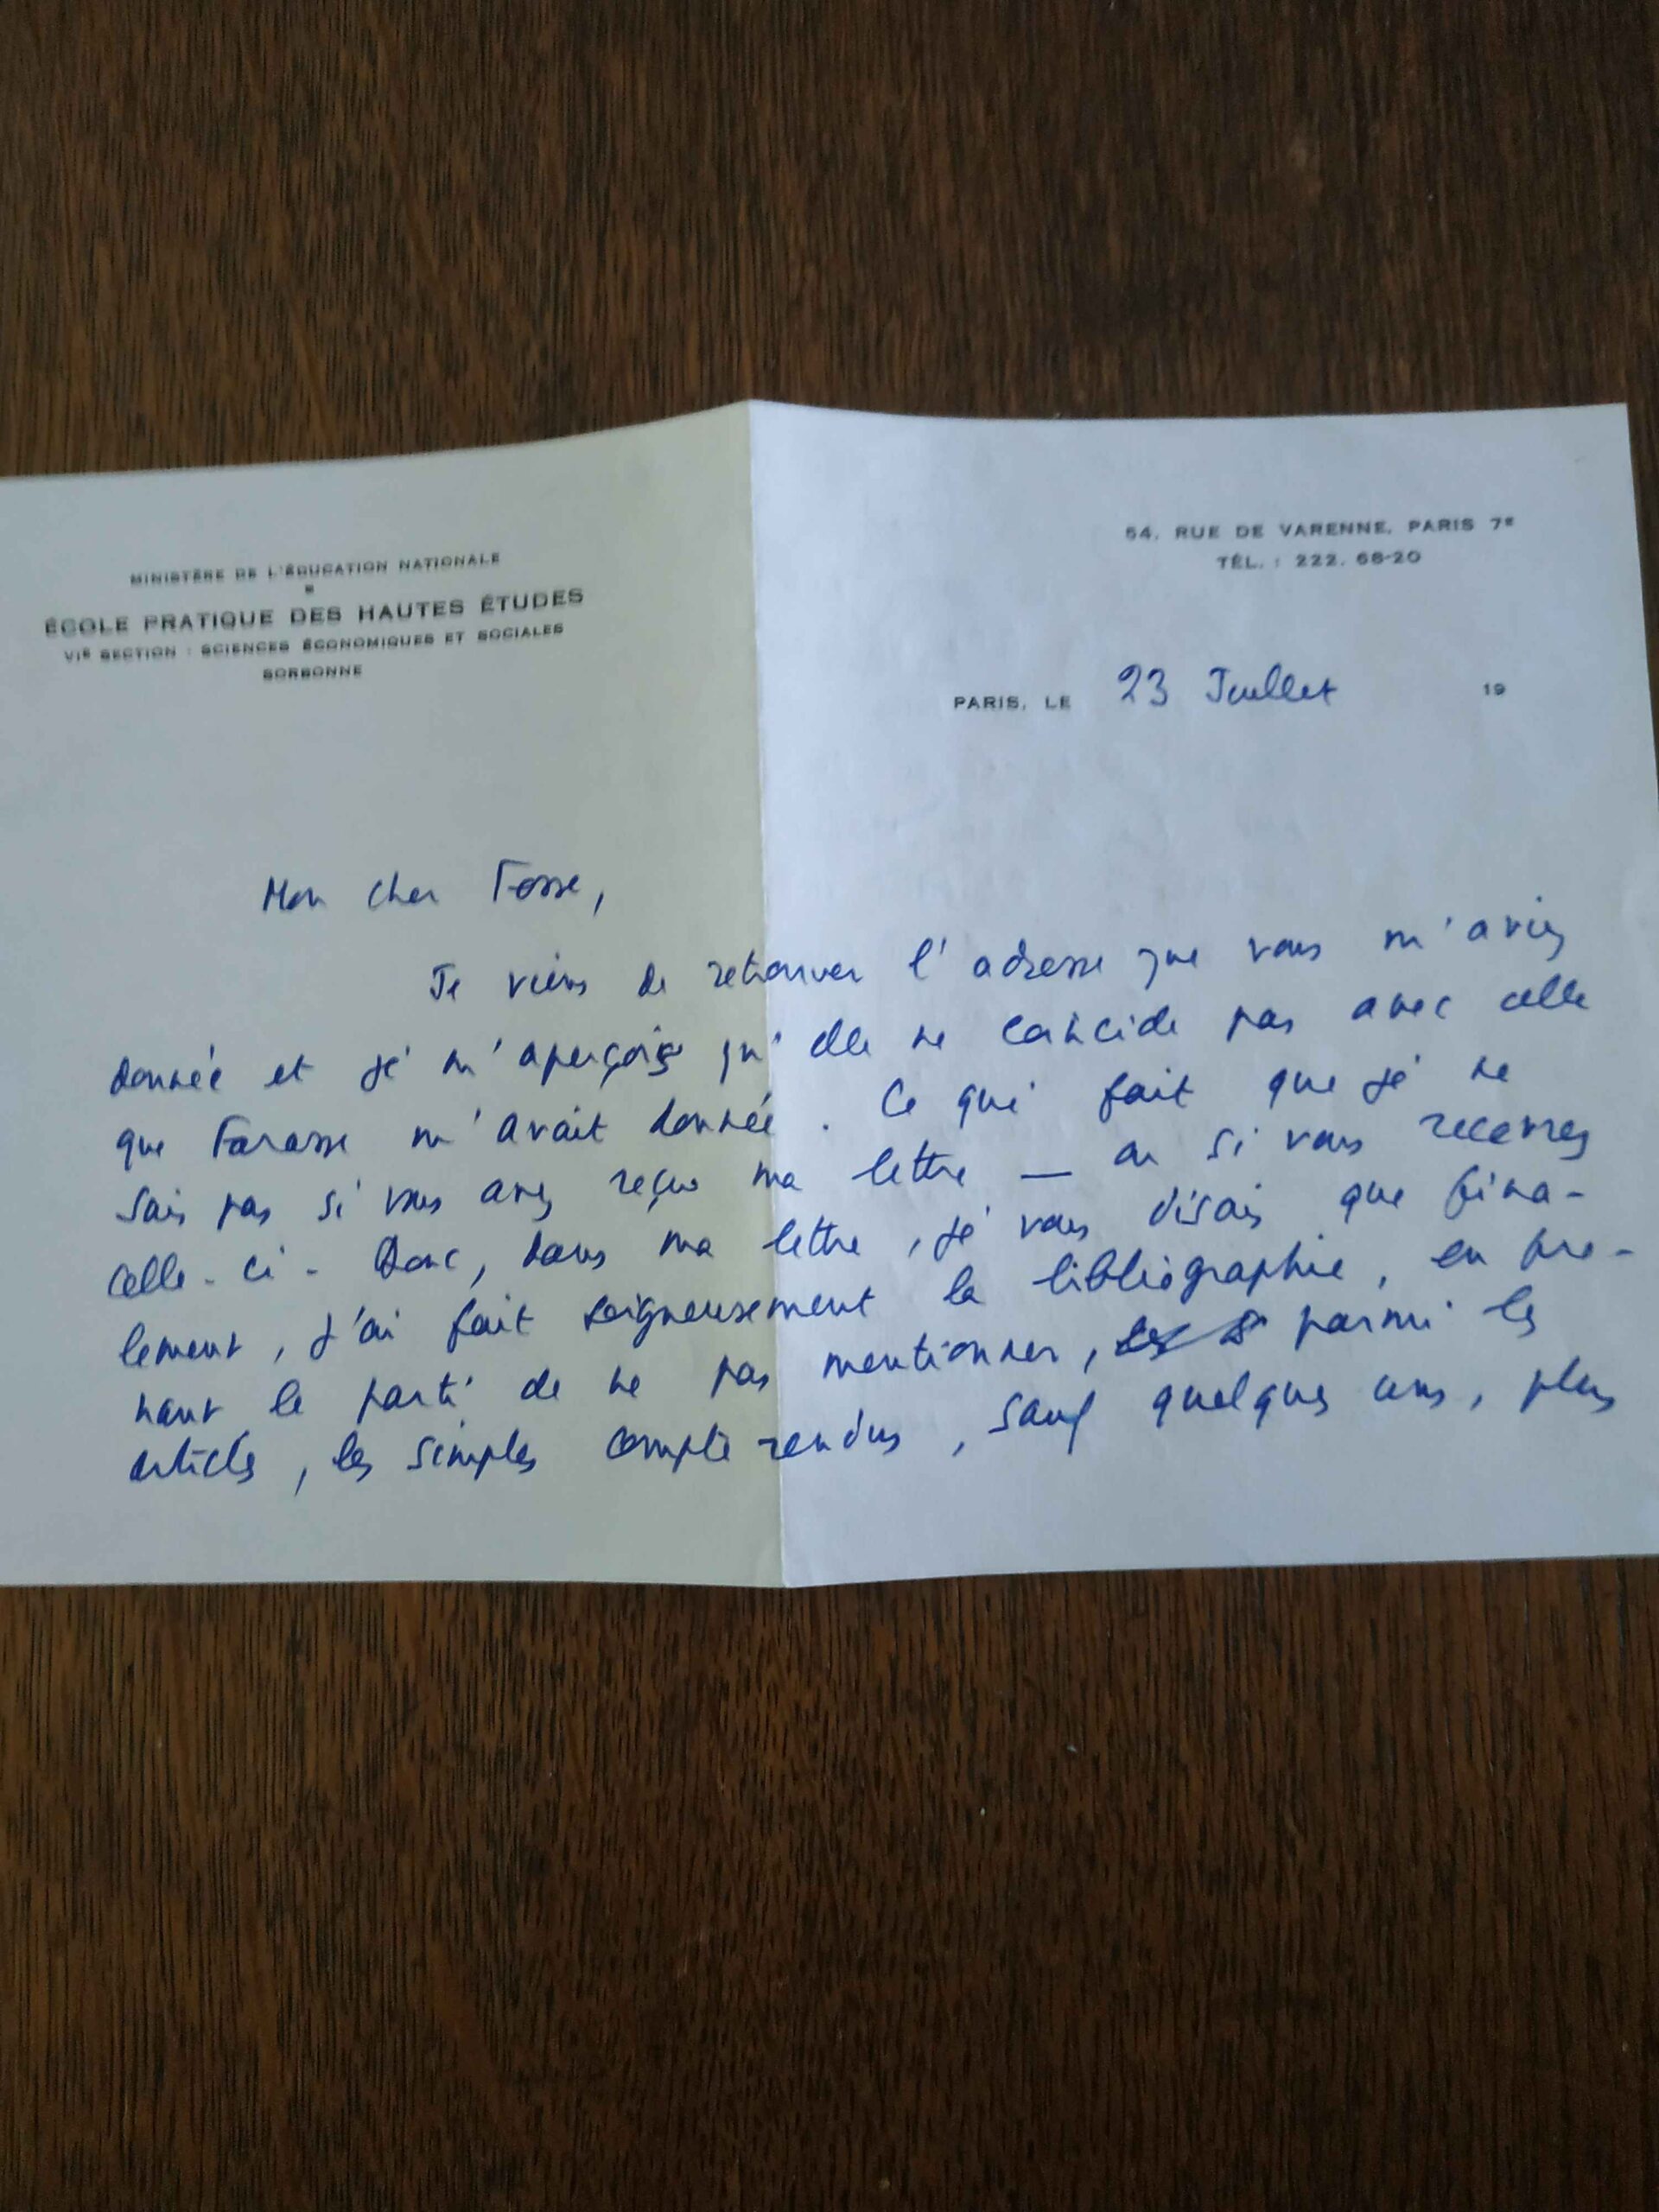 MINISTÈRE DE L'ÉDUCATION NATIONALE
ÉCOLE PRATIQUE DES HAUTES ÉTUDES
VIE SECTION : SCIENCES ÉCONOMIQUES ET SOCIALES
SORBONNE
54, RUE DE VARENNE, PARIS 7E
TÉL. : 222. 68-20
PARIS, LE 23 Juillet 19
Mon cher Fosse,
Je viens de retrouver l'adresse que vous m'aviez
donnée et je m'aperçois qu'elle ne coïncide pas avec celle
que Farasse m'avait donnée. Ce qui fait que je ne
sais pas si vous avez reçu ma lettre — ou si vous recevrez
celle-ci. Donc, dans ma lettre, je vous disais que fina-
lement, j'ai fait soigneusement la bibliographie, en pre-
nant le parti de ne pas mentionner, parmi les
articles, les simples compte rendus, sauf quelques uns, plus